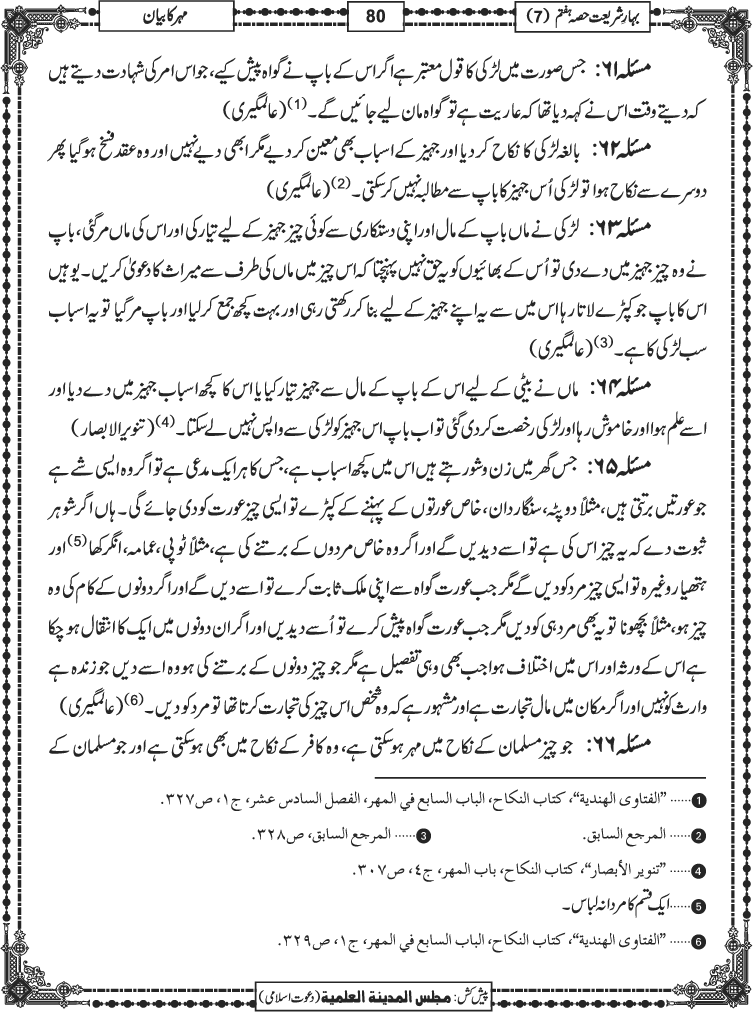 بہارِ شریعت حصہ ہفتم (7)
80
مہر کا بیان
مسئلہ ۶۱: جس صورت میں لڑکی کا قول معتبر ہے اگر اس کے باپ نے گواہ پیش کیے، جو اس امر کی شہادت دیتے ہیں
کہ دیتے وقت اس نے کہہ دیا تھا کہ عاریت ہے تو گواہ مان لیے جائیں گے۔ (1) (عالمگیری)
مسئلہ ۶۲: بالغہ لڑکی کا نکاح کر دیا اور جہیز کے اسباب بھی معین کر دیے مگر ابھی دیے نہیں اور وہ عقد فسخ ہوگیا پھر
دوسرے سے نکاح ہوا تو لڑکی اُس جہیز کا باپ سے مطالبہ نہیں کرسکتی۔ (2) (عالمگیری)
مسئلہ ۶۳: لڑکی نے ماں باپ کے مال اور اپنی دستکاری سے کوئی چیز جہیز کے لیے تیار کی اور اس کی ماں مرگئی، باپ
نے وہ چیز جہیز میں دے دی تو اُس کے بھائیوں کو یہ حق نہیں پہنچتا کہ اس چیز میں ماں کی طرف سے میراث کا دعویٰ کریں۔ یوہیں
اس کا باپ جو کپڑے لاتا رہا اس میں سے یہ اپنے جہیز کے لیے بنا کر رکھتی رہی اور بہت کچھ جمع کرلیا اور باپ مرگیا تو یہ اسباب
سب لڑکی کا ہے۔ (3) (عالمگیری)
مسئلہ ۶۴: ماں نے بیٹی کے لیے اس کے باپ کے مال سے جہیز تیار کیا یا اس کا کچھ اسباب جہیز میں دے دیا اور
اسے علم ہوا اور خاموش رہا اور لڑکی رخصت کردی گئی تو اب باپ اس جہیز کو لڑکی سے واپس نہیں لے سکتا۔ (4) (تنویر الابصار)
مسئلہ ۶۵: جس گھر میں زن و شو رہتے ہیں اس میں کچھ اسباب ہے، جس کا ہر ایک مدعی ہے تو اگر وہ ایسی شے ہے
جو عورتیں برتتی ہیں، مثلاً دوپٹہ، سنگاردان، خاص عورتوں کے پہننے کے کپڑے تو ایسی چیز عورت کو دی جائے گی۔ ہاں اگر شوہر
ثبوت دے کہ یہ چیز اس کی ہے تو اسے دیدیں گے اور اگر وہ خاص مردوں کے برتنے کی ہے، مثلاً ٹوپی، عمامہ، انگرکھا (5) اور
ہتھیار وغیرہ تو ایسی چیز مرد کو دیں گے مگر جب عورت گواہ سے اپنی ملک ثابت کرے تو اسے دیں گے اور اگر دونوں کے کام کی وہ
چیز ہو، مثلاً بچھونا تو یہ بھی مرد ہی کو دیں مگر جب عورت گواہ پیش کرے تو اُسے دیدیں اور اگر ان دونوں میں ایک کا انتقال ہو چکا
ہے اس کے ورثہ اور اس میں اختلاف ہوا جب بھی وہی تفصیل ہے مگر جو چیز دونوں کے برتنے کی ہو وہ اسے دیں جو زندہ ہے
وارث کو نہیں اور اگر مکان میں مال تجارت ہے اور مشہور ہے کہ وہ شخص اس چیز کی تجارت کرتا تھا تو مرد کو دیں۔ (6) (عالمگیری)
مسئلہ ۶۶: جو چیز مسلمان کے نکاح میں مہر ہوسکتی ہے، وہ کافر کے نکاح میں بھی ہوسکتی ہے اور جو مسلمان کے
1 ...... ”الفتاوی الھندیة“، کتاب النکاح، الباب السابع في المھر، الفصل السادس عشر، ج۱، ص۳۲۷.
2 ...... المرجع السابق. 3 ...... المرجع السابق، ص۳۲۸.
4 ...... ”تنویر الأبصار“، کتاب النکاح، باب المھر، ج٤، ص۳۰۷.
5 ...... ایک قسم کا مردانہ لباس۔
6 ...... ”الفتاوی الھندیة“، کتاب النکاح، الباب السابع في المھر، ج۱، ص۳۲۹.
پیش کش: مجلس المدینة العلمیة (دعوت اسلامی)